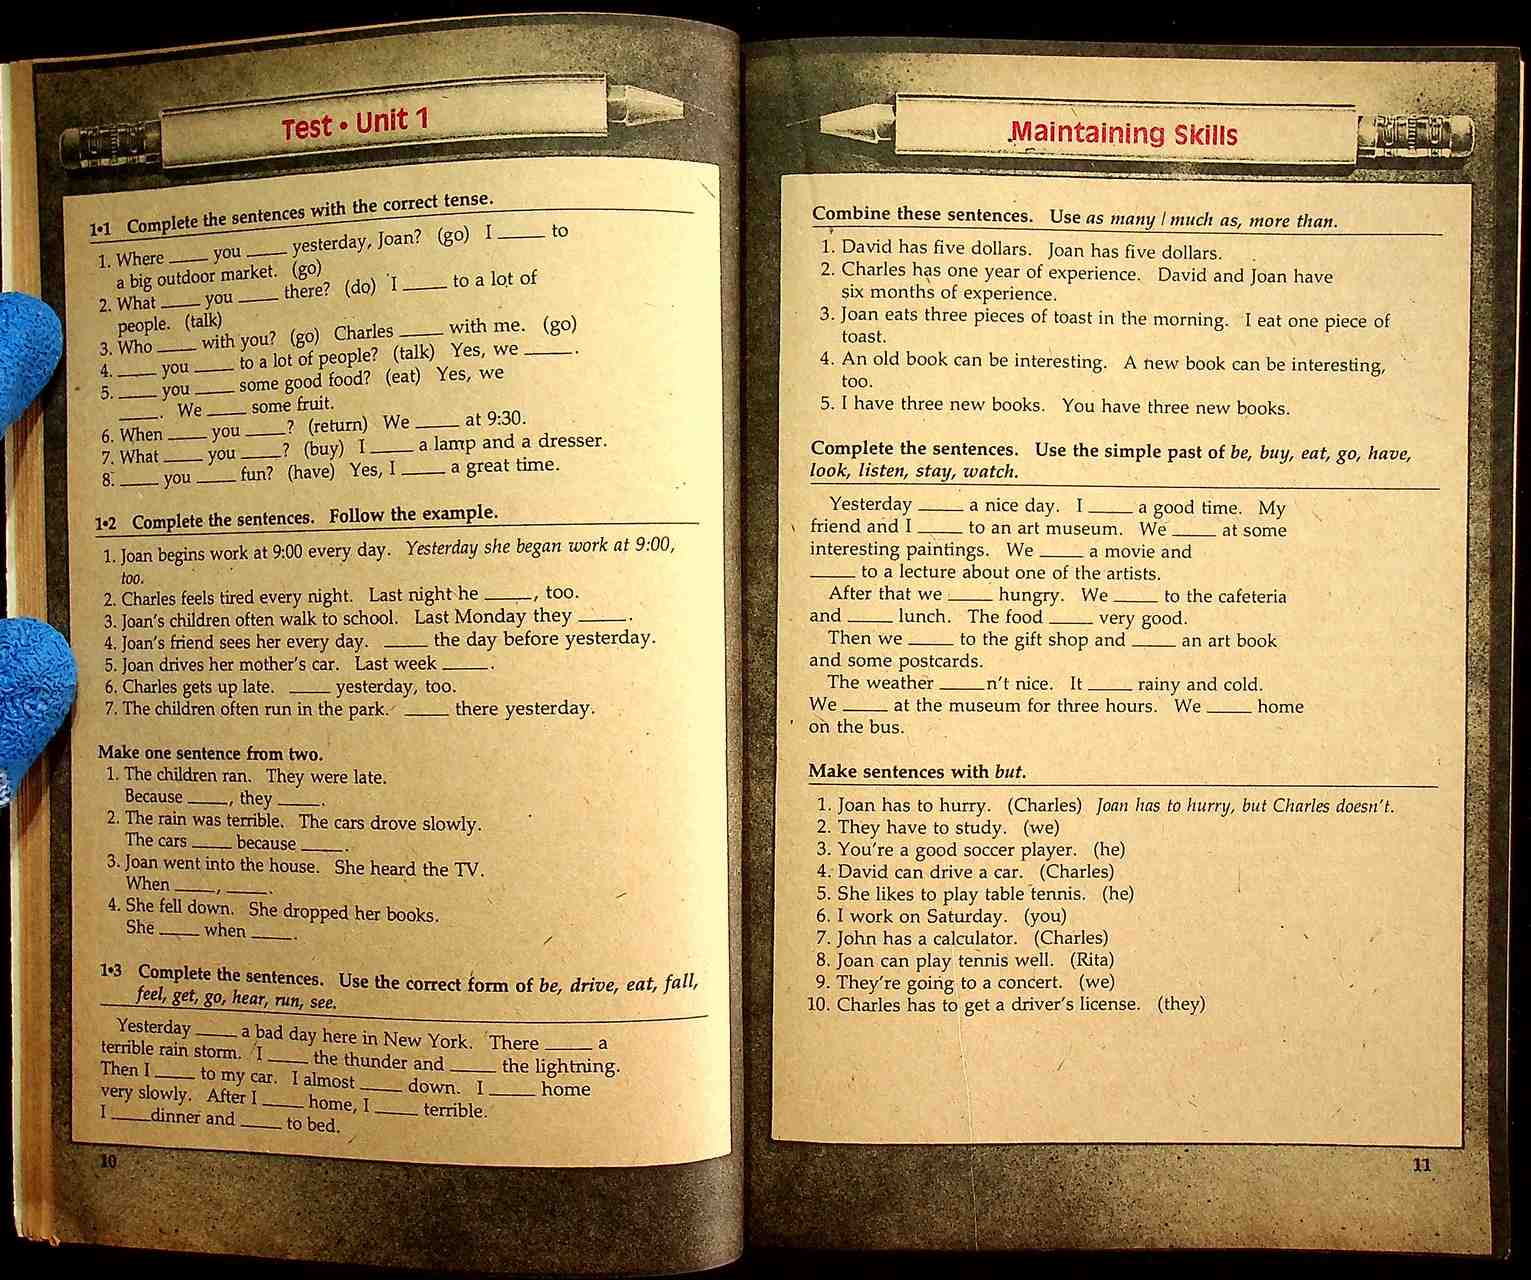 Test • Unit 1
1•1 Complete the sentences with the correct tense.
1. Where ____ you ____ yesterday, Joan? (go) I ____ to
a big outdoor market. (go)
2. What ____ you ____ there? (do) I ____ to a lot of
people. (talk)
3. Who ____ with you? (go) Charles ____ with me. (go)
4. ____ you ____ to a lot of people? (talk) Yes, we ____.
5. ____ you ____ some good food? (eat) Yes, we
____. We ____ some fruit.
6. When ____ you ____? (return) We ____ at 9:30.
7. What ____ you ____? (buy) I ____ a lamp and a dresser.
8. ____ you ____ fun? (have) Yes, I ____ a great time.
1•2 Complete the sentences. Follow the example.
1. Joan begins work at 9:00 every day. Yesterday she began work at 9:00,
too.
2. Charles feels tired every night. Last night he ____, too.
3. Joan's children often walk to school. Last Monday they ____.
4. Joan's friend sees her every day. ____ the day before yesterday.
5. Joan drives her mother's car. Last week ____.
6. Charles gets up late. ____ yesterday, too.
7. The children often run in the park. ____ there yesterday.
Make one sentence from two.
1. The children ran. They were late.
Because ____, they ____.
2. The rain was terrible. The cars drove slowly.
The cars ____ because ____.
3. Joan went into the house. She heard the TV.
When ____, ____.
4. She fell down. She dropped her books.
She ____ when ____.
1•3 Complete the sentences. Use the correct form of be, drive, eat, fall,
feel, get, go, hear, run, see.
Yesterday ____ a bad day here in New York. There ____ a
terrible rain storm. I ____ the thunder and ____ the lightning.
Then I ____ to my car. I almost ____ down. I ____ home
very slowly. After I ____ home, I ____ terrible.
I ____ dinner and ____ to bed.
10
Maintaining Skills
Combine these sentences. Use as many / much as, more than.
1. David has five dollars. Joan has five dollars.
2. Charles has one year of experience. David and Joan have
six months of experience.
3. Joan eats three pieces of toast in the morning. I eat one piece of
toast.
4. An old book can be interesting. A new book can be interesting,
too.
5. I have three new books. You have three new books.
Complete the sentences. Use the simple past of be, buy, eat, go, have,
look, listen, stay, watch.
Yesterday ____ a nice day. I ____ a good time. My
friend and I ____ to an art museum. We ____ at some
interesting paintings. We ____ a movie and
____ to a lecture about one of the artists.
After that we ____ hungry. We ____ to the cafeteria
and ____ lunch. The food ____ very good.
Then we ____ to the gift shop and ____ an art book
and some postcards.
The weather ____n't nice. It ____ rainy and cold.
We ____ at the museum for three hours. We ____ home
on the bus.
Make sentences with but.
1. Joan has to hurry. (Charles) Joan has to hurry, but Charles doesn't.
2. They have to study. (we)
3. You're a good soccer player. (he)
4. David can drive a car. (Charles)
5. She likes to play table tennis. (he)
6. I work on Saturday. (you)
7. John has a calculator. (Charles)
8. Joan can play tennis well. (Rita)
9. They're going to a concert. (we)
10. Charles has to get a driver's license. (they)
11